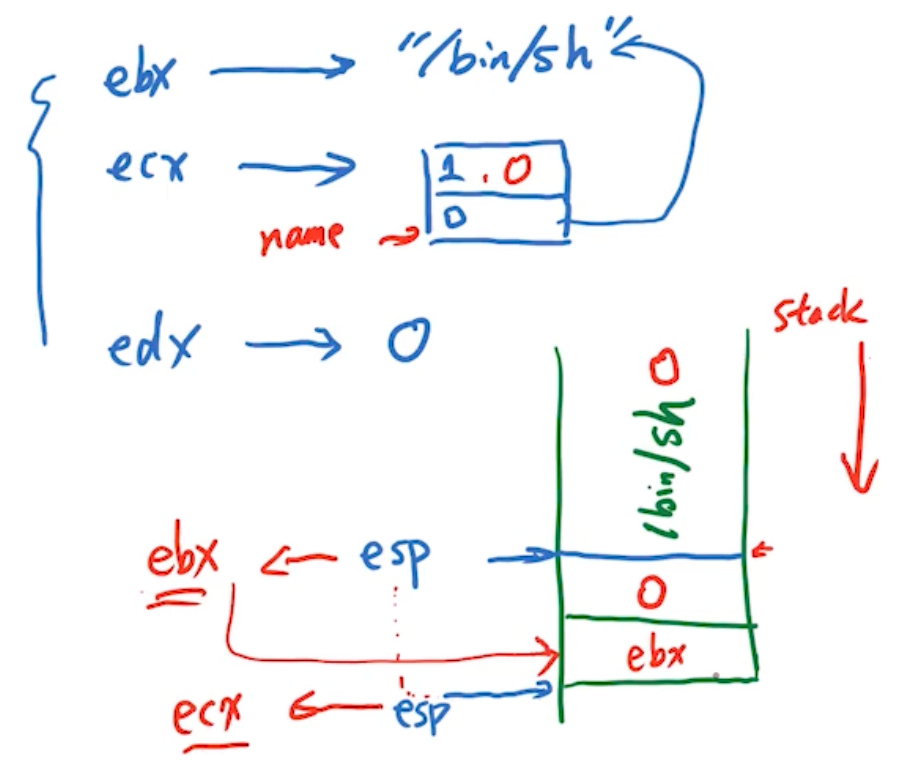 ebx → "/bin/sh"
ecx → 1.0
name → 0
edx → 0
stack
0
/bin/sh
ebx ← esp →
0
ebx
ecx ← esp →